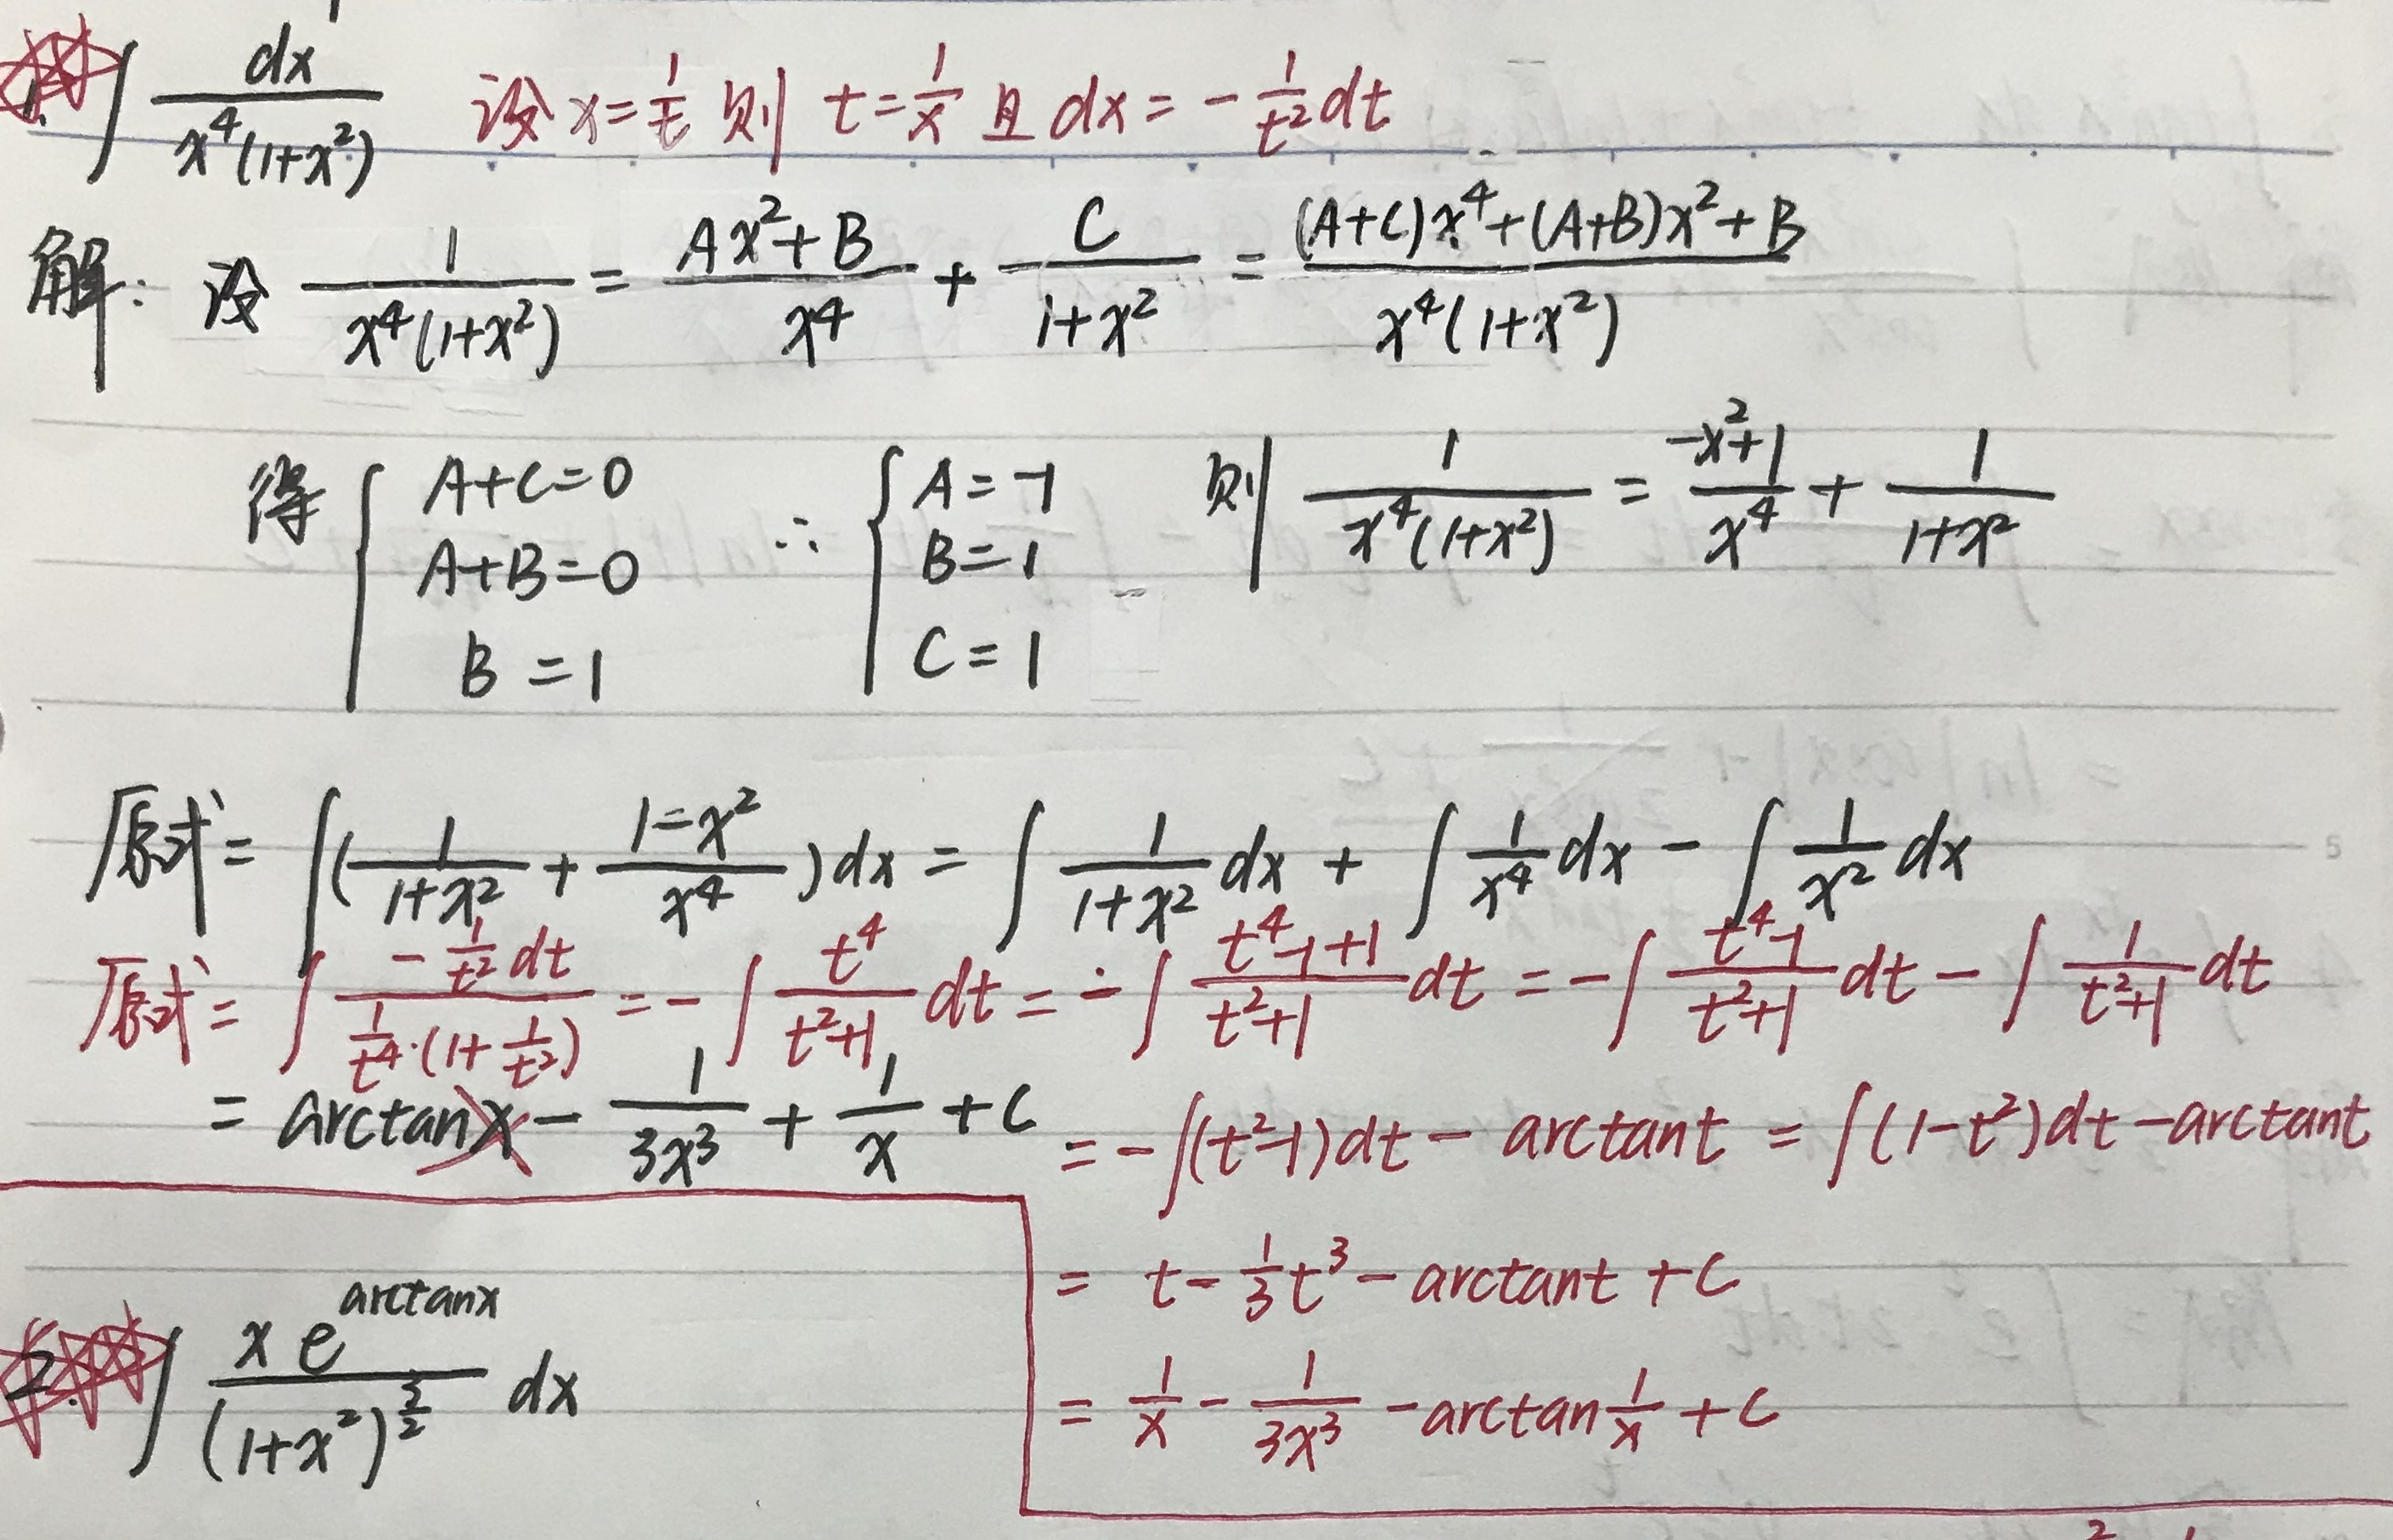 1. ∫ dx / x⁴(1+x²) 设 x = 1/t 则 t = 1/x 且 dx = - 1/t² dt
解: 设 1 / x⁴(1+x²) = Ax²+B / x⁴ + C / 1+x² = (A+C)x⁴+(A+B)x²+B / x⁴(1+x²)
得 { A+C=0 A+B=0 B=1 ∴ { A=-1 B=1 C=1 则 1 / x⁴(1+x²) = -x²+1 / x⁴ + 1 / 1+x²
原式 = ∫( 1 / 1+x² + 1-x² / x⁴ )dx = ∫ 1 / 1+x² dx + ∫ 1/x⁴ dx - ∫ 1/x² dx
原式 = ∫ - 1/t² dt / 1/t⁴·(1+ 1/t²) = -∫ t⁴ / t²+1 dt = -∫ t⁴-1+1 / t²+1 dt = -∫ t⁴-1 / t²+1 dt - ∫ 1 / t²+1 dt
= arctanx - 1/3x³ + 1/x + C
= -∫(t²-1)dt - arctant = ∫(1-t²)dt - arctant
= t - 1/3 t³ - arctant + C
= 1/x - 1/3x³ - arctan 1/x + C
2. ∫ x e^arctanx / (1+x²)^3/2 dx